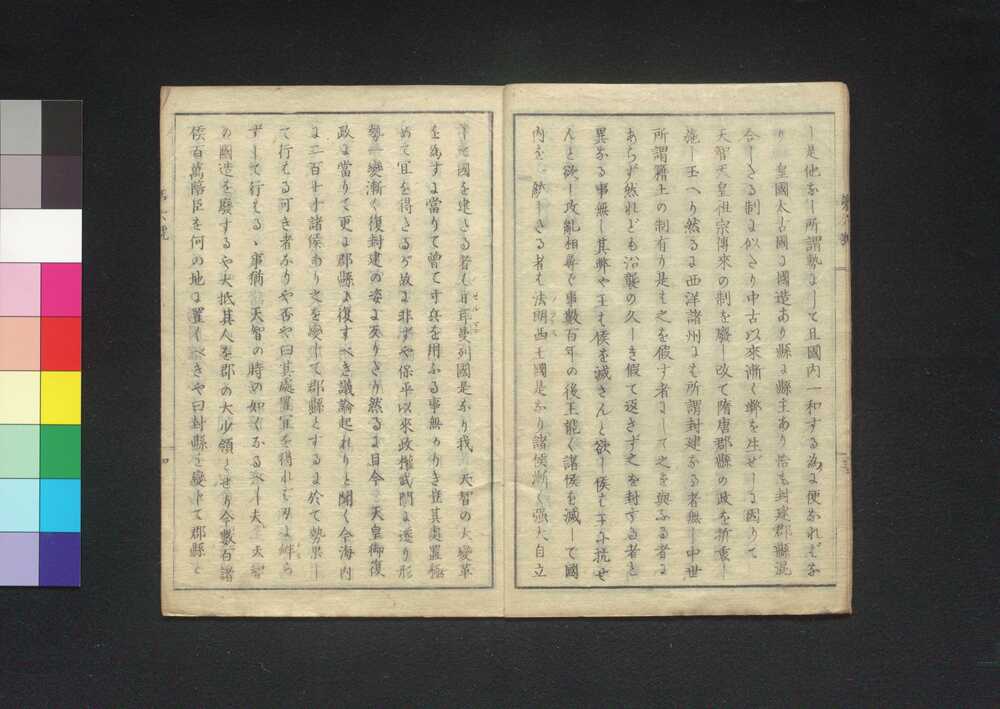 し是他なし所謂勢にして且國内一和する為に便なれバな
り 皇國太古國に國造あり縣に縣主あり恰も封建郡縣混
合したる制に似たり中古以來漸く弊を生ぜしに因りて
天智天皇祖宗傳來の制を廢し改て隋唐郡縣の政を折衷し
施し玉へり然るに西洋諸州にも所謂封建なる者無し中世
所謂籍土の制有り是も之を假す者にして之を與ふる者に
あらず然れども沿襲の久しき假て返さず之を封する者と
異なる事無し其弊や王も侯を滅さんと欲し侯も王に抗せ
んと欲し攻亂相尋ぐ事數百年の後王能く諸侯を滅して國
内を一統したる者も法朗西王國是なり諸侯漸く強大自立
フランス
して國を建たる者も日耳曼列國是なり我 天智の大變革
ゼルマン
を為すに當りて曾て寸兵を用ふる事無かりき豈其處置極
めて宜を得たるが故に非ずや保平以來政權武門に遷り形
勢一變漸く復封建の姿に反りたり然るに目今 天皇御復
政に當りて更に郡縣に復すべき議論起れりと聞く今海内
に二百廿十諸侯あり之を變して郡縣とするに於て勢果し
て行はる可き者なりや否や曰其處置宜を得れバ刃に衅ら
ずして行はるゝ事猶 天智の時の如くなるべし夫 天智
の國造を廢するや大抵其人を郡の大少領とせり今數百諸
侯百萬陪臣を何の地に置くべきや曰封縣を變して郡縣と